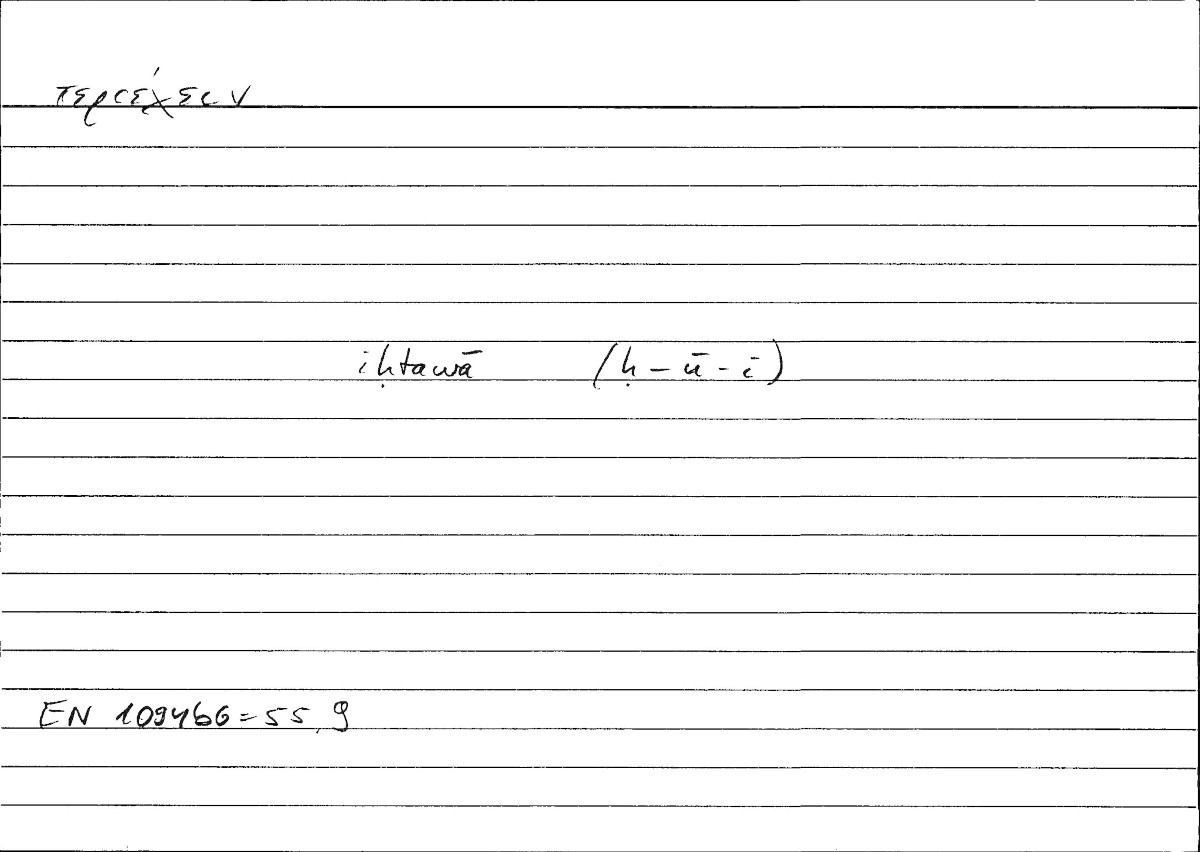 περιέχειν
iḥtawā (ḥ-ū-ī)
EN 1094b6 = 55,9